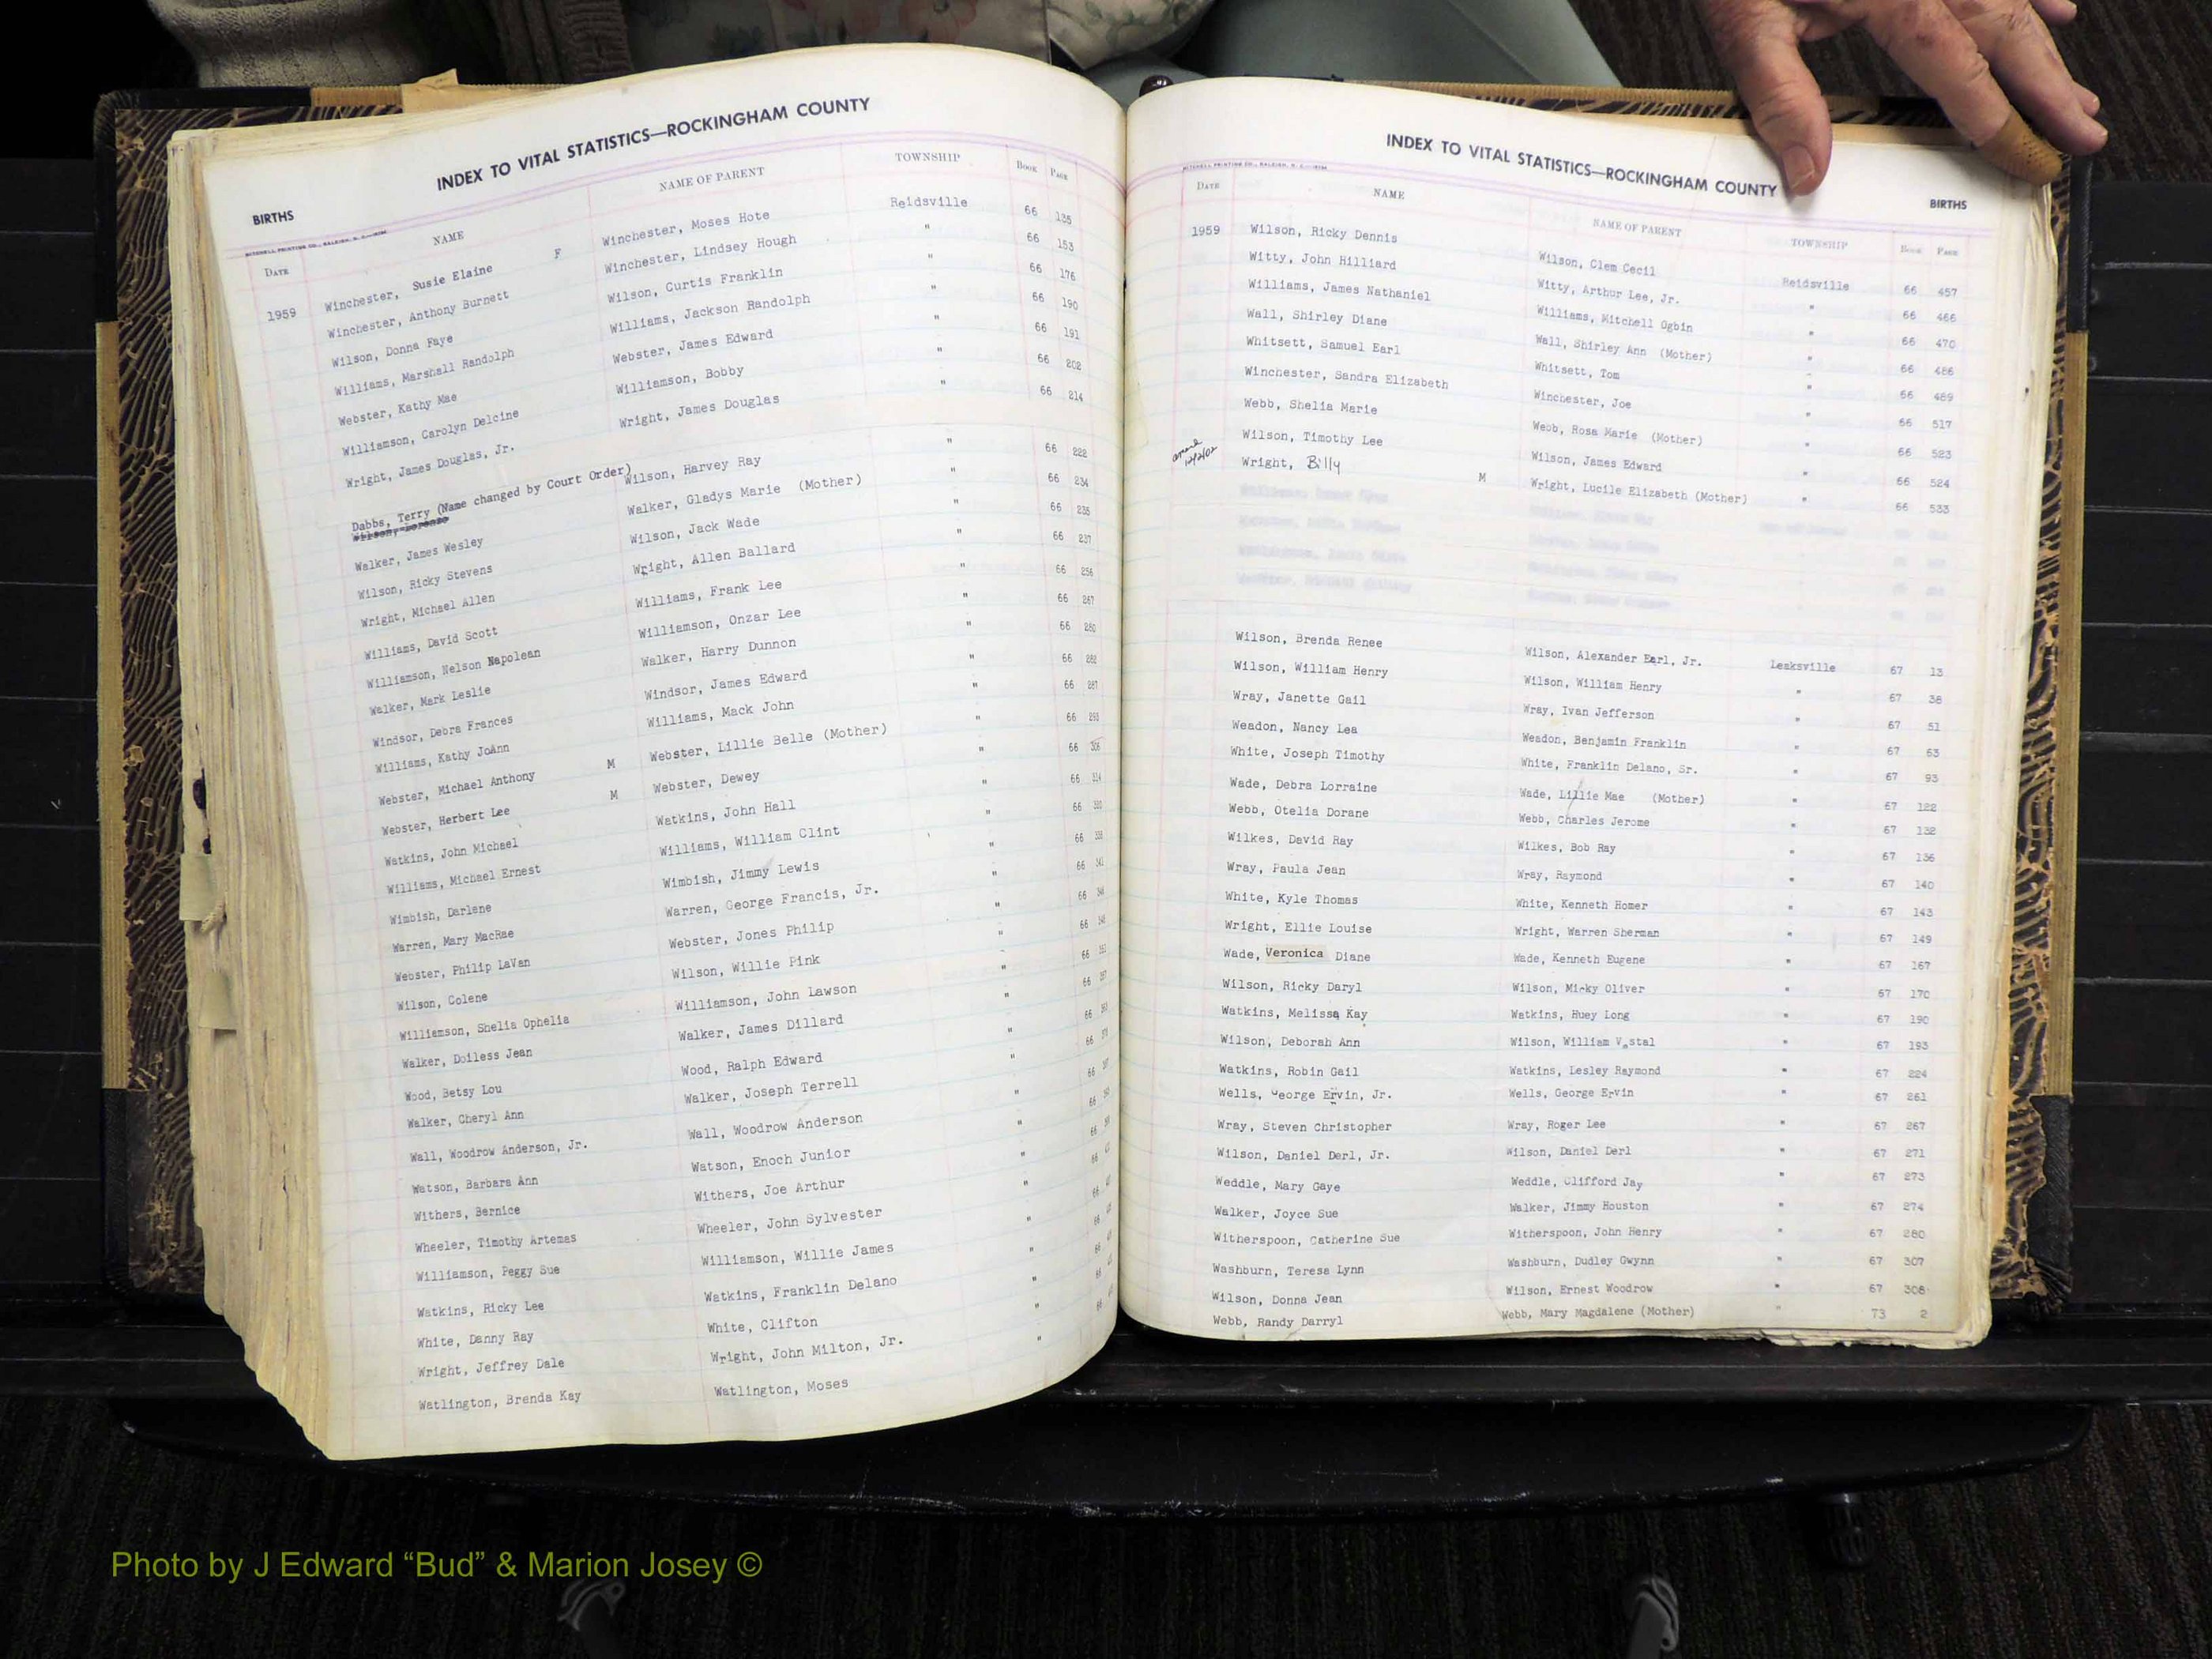 INDEX TO VITAL STATISTICS—ROCKINGHAM COUNTY
BIRTHS
MITCHELL PRINTING CO., RALEIGH, N. C.
DATE NAME NAME OF PARENT TOWNSHIP BOOK PAGE
1959 Winchester, Susie Elaine F Winchester, Moses Hote Reidsville 66 135
Winchester, Anthony Burnett Winchester, Lindsey Hough " 66 153
Wilson, Donna Faye Wilson, Curtis Franklin " 66 176
Williams, Marshall Randolph Williams, Jackson Randolph " 66 190
Webster, Kathy Mae Webster, James Edward " 66 191
Williamson, Carolyn Delcine Williamson, Bobby " 66 202
Wright, James Douglas, Jr. Wright, James Douglas " 66 214
Dabbs, Terry (Name changed by Court Order) Wilson, Harvey Ray " 66 222
Walker, James Wesley Walker, Gladys Marie (Mother) " 66 234
Wilson, Ricky Stevens Wilson, Jack Wade " 66 235
Wright, Michael Allen Wright, Allen Ballard " 66 237
Williams, David Scott Williams, Frank Lee " 66 256
Williamson, Nelson Napolean Williamson, Onzar Lee " 66 267
Walker, Mark Leslie Walker, Harry Dunnon " 66 280
Windsor, Debra Frances Windsor, James Edward " 66 282
Williams, Kathy JoAnn Williams, Mack John " 66 287
Webster, Michael Anthony M Webster, Lillie Belle (Mother) " 66
Webster, Herbert Lee M Webster, Dewey " 66
Watkins, John Michael Watkins, John Hall " 66
Williams, Michael Ernest Williams, William Clint " 66
Wimbish, Darlene Wimbish, Jimmy Lewis " 66
Warren, Mary MacRae Warren, George Francis, Jr. " 66
Webster, Philip LaVan Webster, Jones Philip " 66
Wilson, Colene Wilson, Willie Pink " 66
Williamson, Shelia Ophelia Williamson, John Lawson " 66
Walker, Doiless Jean Walker, James Dillard " 66
Wood, Betsy Lou Wood, Ralph Edward " 66
Walker, Cheryl Ann Walker, Joseph Terrell " 66
Wall, Woodrow Anderson, Jr. Wall, Woodrow Anderson " 66
Watson, Barbara Ann Watson, Enoch Junior " 66
Withers, Bernice Withers, Joe Arthur " 66
Wheeler, Timothy Artemas Wheeler, John Sylvester " 66
Williamson, Peggy Sue Williamson, Willie James " 66
Watkins, Ricky Lee Watkins, Franklin Delano " 66
White, Danny Ray White, Clifton " 66
Wright, Jeffrey Dale Wright, John Milton, Jr. " 66
Watlington, Brenda Kay Watlington, Moses "
INDEX TO VITAL STATISTICS—ROCKINGHAM COUNTY
MITCHELL PRINTING CO., RALEIGH, N. C.
BIRTHS
DATE NAME NAME OF PARENT TOWNSHIP BOOK PAGE
1959 Wilson, Ricky Dennis Wilson, Clem Cecil Reidsville 66 457
Witty, John Hilliard Witty, Arthur Lee, Jr. " 66 466
Williams, James Nathaniel Williams, Mitchell Ogbin " 66 470
Wall, Shirley Diane Wall, Shirley Ann (Mother) " 66 486
Whitsett, Samuel Earl Whitsett, Tom " 66 489
Winchester, Sandra Elizabeth Winchester, Joe " 66 517
Webb, Shelia Marie Webb, Rosa Marie (Mother) " 66 523
Wilson, Timothy Lee Wilson, James Edward " 66 524
Wright, Billy M Wright, Lucile Elizabeth (Mother) " 66 533
Wilson, Brenda Renee Wilson, Alexander Earl, Jr. Leaksville 67 13
Wilson, William Henry Wilson, William Henry " 67 38
Wray, Janette Gail Wray, Ivan Jefferson " 67 51
Weadon, Nancy Lea Weadon, Benjamin Franklin " 67 63
White, Joseph Timothy White, Franklin Delano, Sr. " 67 93
Wade, Debra Lorraine Wade, Lillie Mae (Mother) " 67 122
Webb, Otelia Dorane Webb, Charles Jerome " 67 132
Wilkes, David Ray Wilkes, Bob Ray " 67 136
Wray, Paula Jean Wray, Raymond " 67 140
White, Kyle Thomas White, Kenneth Homer " 67 143
Wright, Ellie Louise Wright, Warren Sherman " 67 149
Wade, Veronica Diane Wade, Kenneth Eugene " 67 167
Wilson, Ricky Daryl Wilson, Micky Oliver " 67 170
Watkins, Melissa Kay Watkins, Huey Long " 67 190
Wilson, Deborah Ann Wilson, William Vestal " 67 193
Watkins, Robin Gail Watkins, Lesley Raymond " 67 224
Wells, George Ervin, Jr. Wells, George Ervin " 67 261
Wray, Steven Christopher Wray, Roger Lee " 67 267
Wilson, Daniel Derl, Jr. Wilson, Daniel Derl " 67 271
Weddle, Mary Gaye Weddle, Clifford Jay " 67 273
Walker, Joyce Sue Walker, Jimmy Houston " 67 274
Witherspoon, Catherine Sue Witherspoon, John Henry " 67 280
Washburn, Teresa Lynn Washburn, Dudley Gwynn " 67 307
Wilson, Donna Jean Wilson, Ernest Woodrow " 67 308
Webb, Randy Darryl Webb, Mary Magdalene (Mother) " 73 2
Photo by J Edward “Bud” & Marion Josey ©